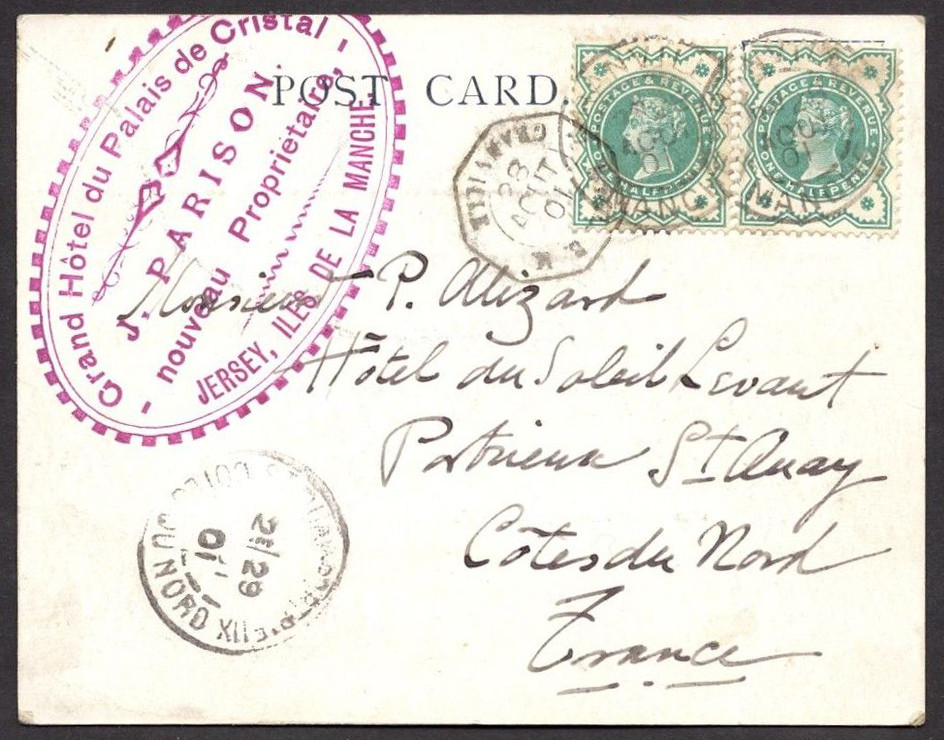 Grand Hôtel du Palais de Cristal
J. PARISON.
nouveau Propriétaire,
JERSEY, ILES DE LA MANCHE
POST CARD.
POSTAGE & REVENUE
ONE HALFPENNY
POSTAGE & REVENUE
ONE HALFPENNY
GRANVILLE
28
AOUT
01
MANCHE
MANCHE
Monsieur P. Alizard
Hôtel du Soleil Levant
Portrieux St Quay
Côtes du Nord
France
29
01
DU NORD